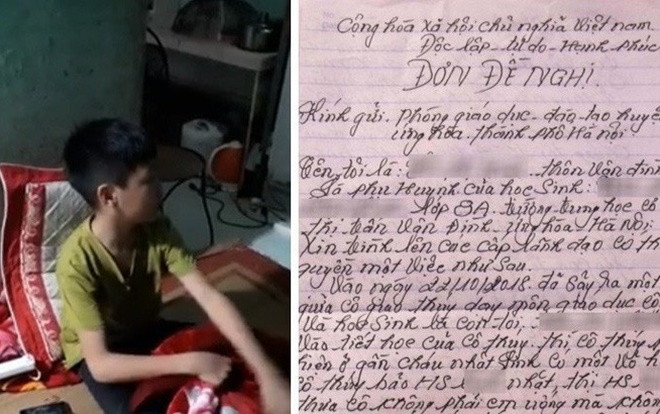 Cộng hòa xã hội chủ nghĩa Việt nam.
Độc lập - tự do - Hạnh phúc
ĐƠN ĐỀ NGHỊ.
Kính gửi. Phòng giáo dục - đào tạo huyện
ứng hòa. thành phố Hà nội.
Tên tôi là: thôn Vân đình
Là phụ Huynh của học Sinh:
lớp 8A. trường trung học cơ
thị trấn Vân Đình - ứng hòa Hà Nội.
Xin trình lên các cấp lãnh đạo có thẩm
quyền một việc như sau.
Vào ngày 22/10/2018. đã Sảy ra một
giữa cô giáo thúy dạy môn giáo dục cô
Và học Sinh là con tôi.
Vào tiết học của cô thúy. thì cô thúy
hiện ở gần cháu nhất Đình có một vỏ
cô thúy bảo HS nhất, thì HS
thưa cô không phải em uống mà không